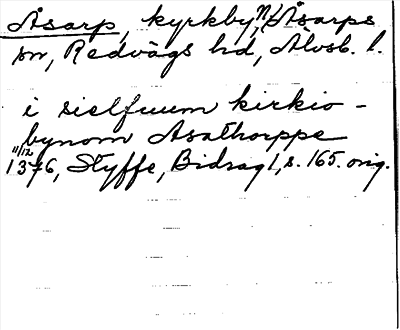 Åsarp, kyrkby, N. Åsarps
sn, Redvägs hd, Älvsb. l.
i sielfuum kirkio-
bynom Asathorppe
11/12
1376, Styffe, Bidrag 1, s. 165. orig.